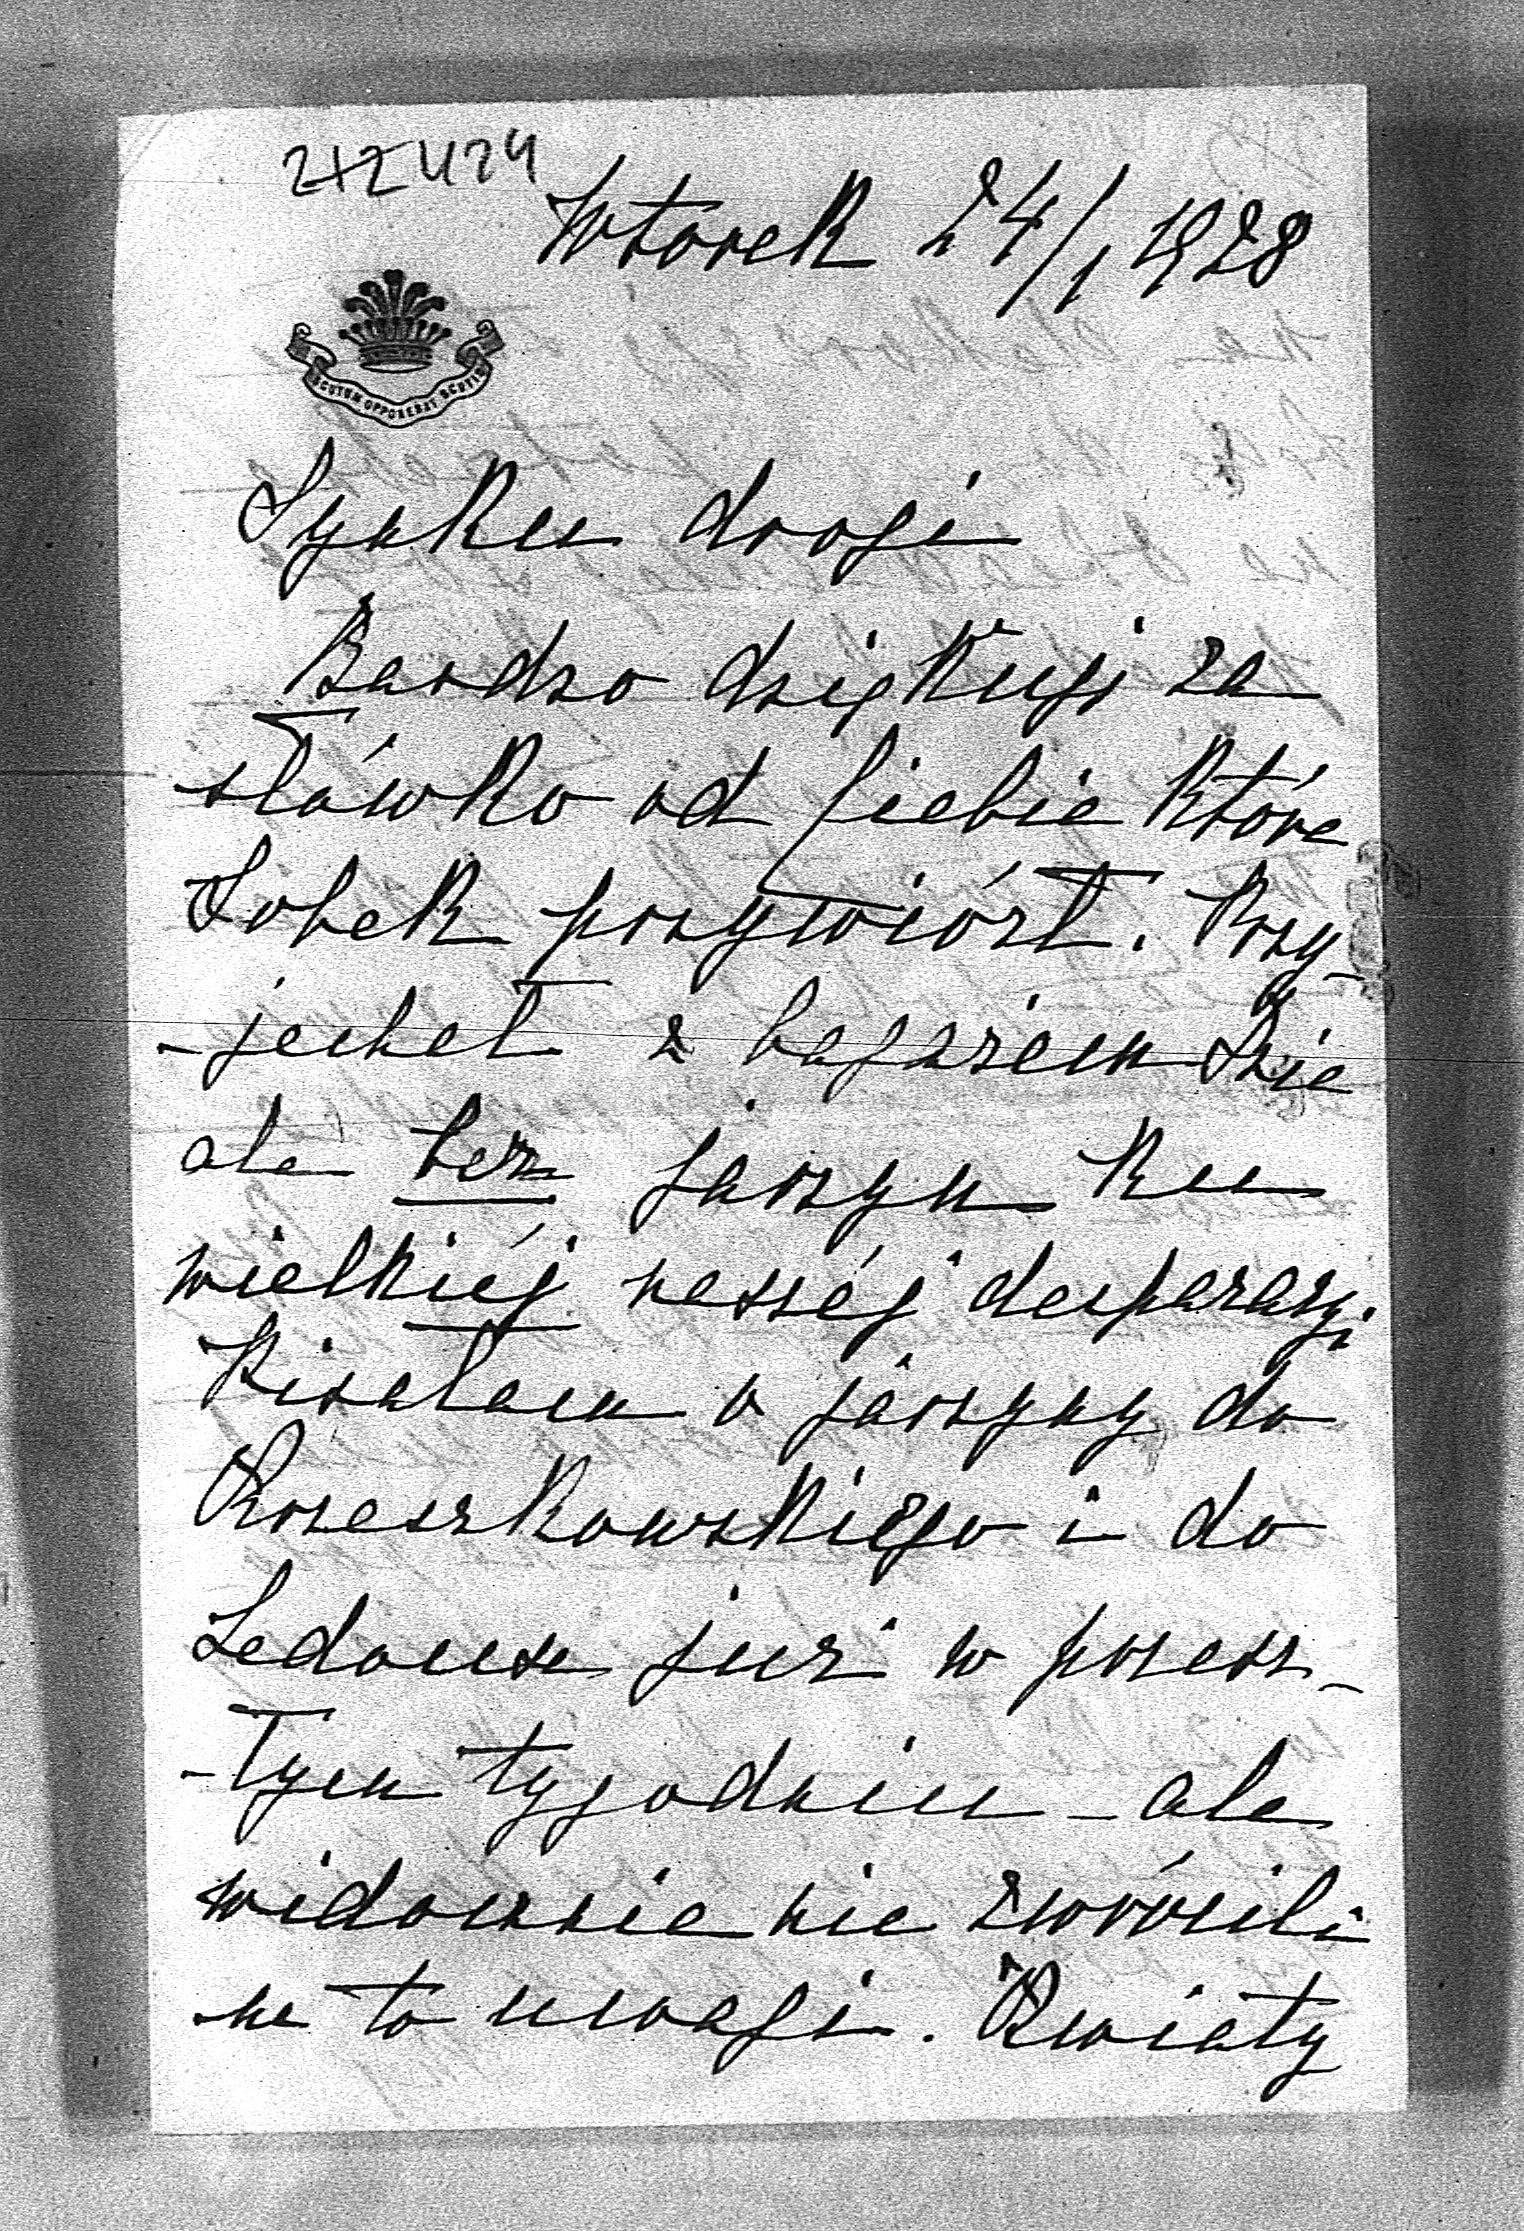 2+2 424
Wtorek 24/1 1928
SCUTUM OPPONEBAT SCUTIS
Synku drogi
Bardzo dziękuję za
słówko od Ciebie które
Sobek przywiózł. Przy-
-jechał z bagażem
ale bez jarzyn ku
wielkiéj naszéj desperazji
Pisałam o jarzyny do
Roreszkowskiego i do
Ledouxa już w przesz-
-łym tygodniu - ale
widocznie nie zwrócili
na to uwagi. Kwiaty